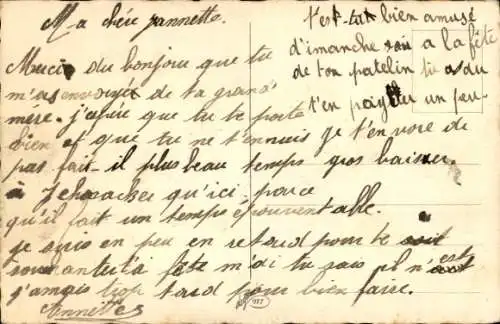 Ma chère Jannette.
Merci du bonjour que tu
m'as envoyée de ta grand
mère. j'espère que tu te porte
bien et que tu ne t'ennuis
pas fait-il plus beau temps
à qu'ici, parce
qu'il fait un temps épouventable.
je suis en peu en retard pour te
souhanter ta fête m'di tu sais il n'est
jamais trop tard pour bien faire.
t'es-tu bien amusé
dimanche soir a la fête
de ton patelin tu as du
t'en payer un peu
je t'envoie de
gros baiser.